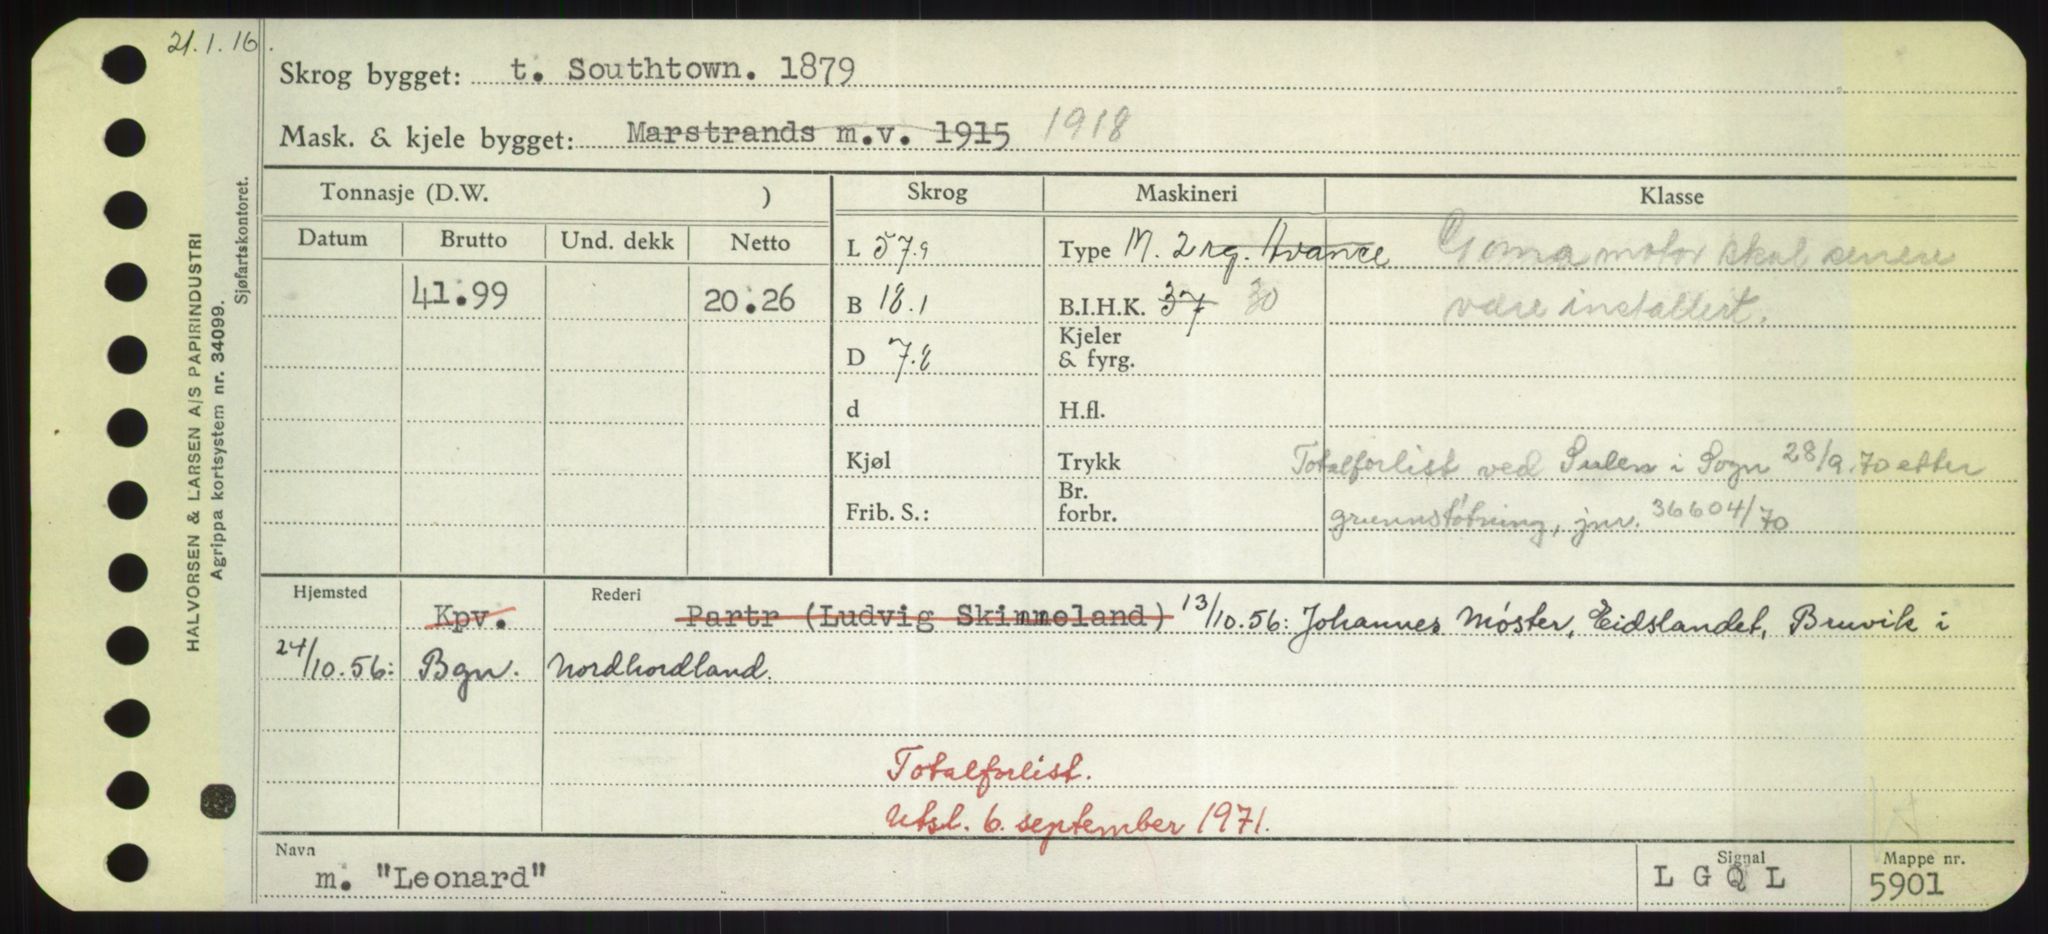 21.1.16.
Skrog bygget: t. Southtown. 1879
Mask. & kjele bygget: Marstrands m.v. 1915 1918
Tonnasje (D.W. ) Skrog Maskineri Klasse
Datum Brutto Und. dekk Netto
L 57.9 Type M. 2 rg. Avance Goma motor skal senere
41.99 20.26 B 18.1 B.I.H.K. 37 30 være installert.
D 7.8 Kjeler & fyrg.
d H.fl.
Kjøl Trykk Totalforlist ved Sulen i Sogn 28/9.70 etter
Frib. S.: Br. forbr. grunnstøtning, jnr. 36604/70
Hjemsted Rederi
Kpv. Partr (Ludvig Skimmeland) 13/10.56: Johannes Møster, Eidslandet, Bruvik i
24/10.56: Bgn. Nordhordland.
Totalforlist.
Utsl. 6. september 1971.
Navn Signal Mappe nr.
m. "Leonard" L G Q L 5901
HALVORSEN & LARSEN A/S PAPIRINDUSTRI
Agrippa kortsystem nr. 34099.
Sjøfartskontoret.